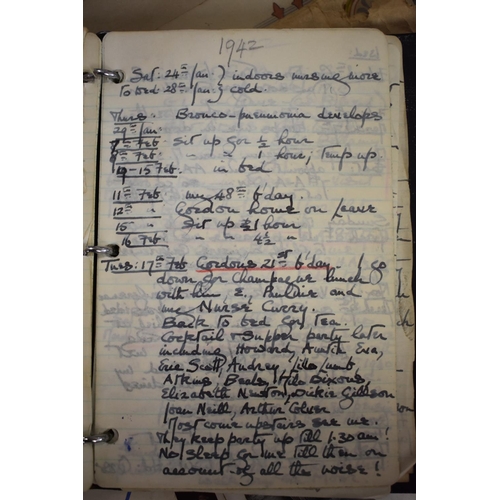 1942
Sat: 24th Jan: } indoors nursing more
To Wed: 28th Jan: } cold.
Thurs. Bronco-pneumonia develops
29th Jan:
7th Feb Sit up for ½ hour
8th Feb " " 1 hour, Temp up.
9-15 Feb. in bed
11th Feb my 48th b'day.
12th " Gordon home on leave
15 " Sit up 1 hour
16 Feb " " 4½ "
Tues: 17th Feb Gordons 21st b'day. I go
down for Champagne lunch
with him, E., Pauline and
my Nurse Curry.
Back to bed for Tea.
Cocktail & Supper party later
including Howard, Auntie Eva,
Eric Scott, Audrey
Atkins, Beals, Dixons,
Elizabeth Newton, Dickie Gillson
Joan Neill, Arthur
Most come upstairs see me.
They keep party up till 1.30 am!
No sleep for me till then on
account of all the noise!